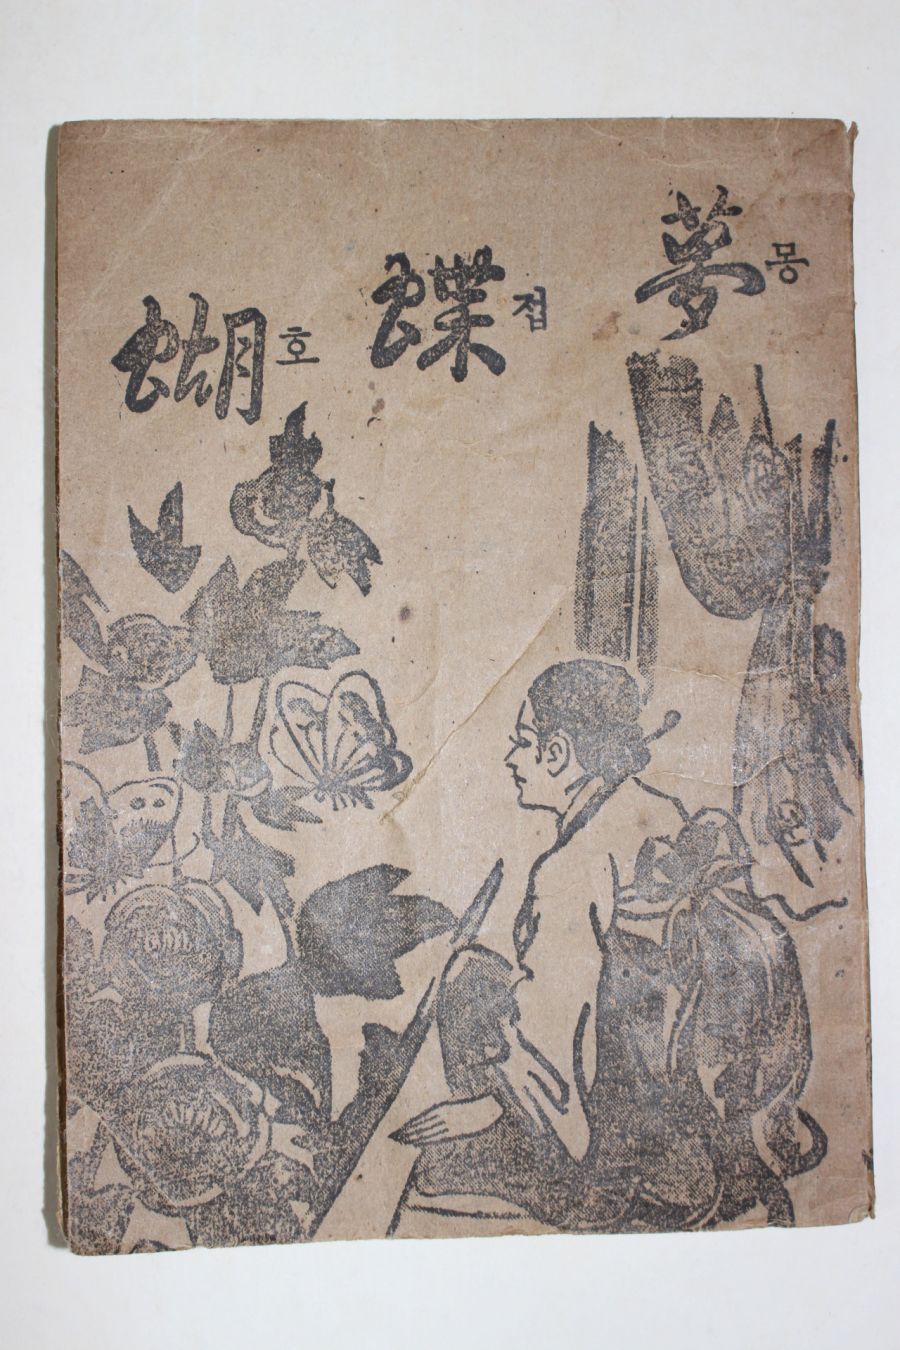 蝴호 蝶접 夢몽